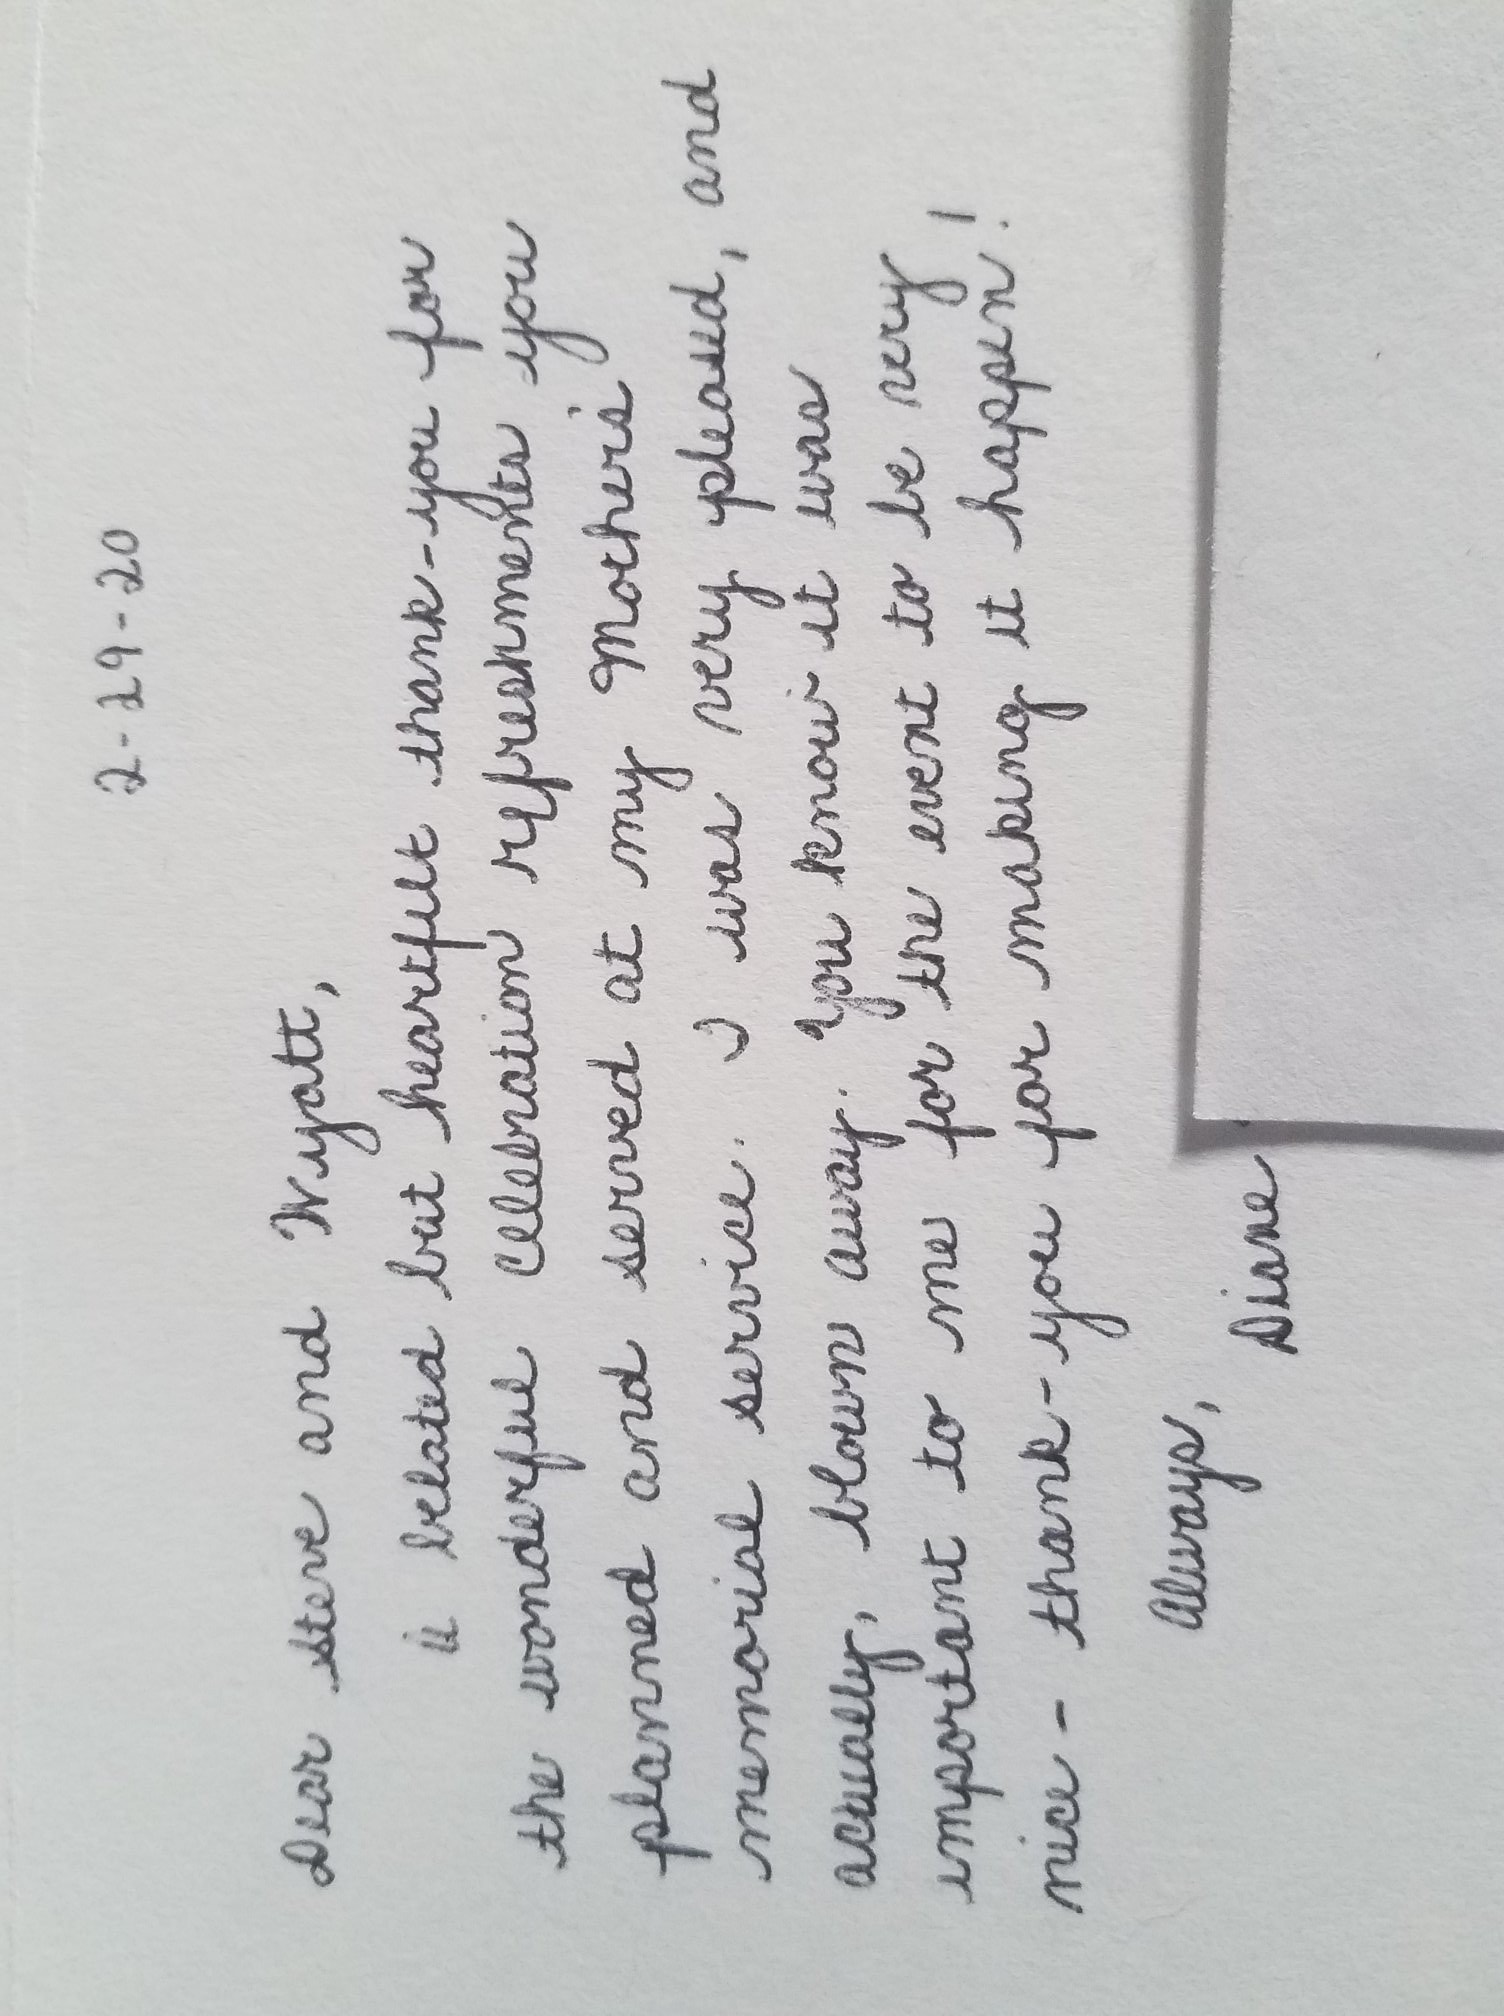 2-29-20
Dear Steve and Wyatt,
a belated but heartfelt thank-you for
the wonderful celebration refreshments you
planned and served at my Mother's
memorial service. I was very pleased, and
actually, blown away. You know it was
important to me for the event to be very
nice - thank-you for making it happen!
Always,
Diane